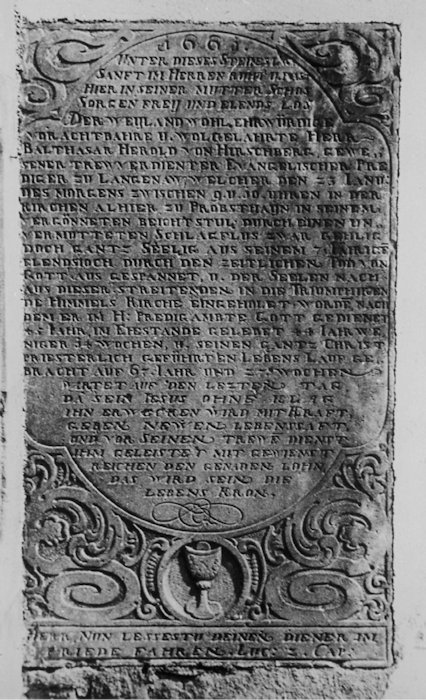 1661.
UNTER DIESES STEINES LAST
SANFT IM HERREN RUHT U. RAST
HIER IN SEINER MUTTER SCHOS
SORGEN FREIJ UND ELENDS LOS
DER WEIJLAND WOHL EHRWÜRDIGE
VORACHTBAHRE U. WOLGELAHRTE HERR
BALTHASAR HEROLD VON HIRSCHBERG, GEWE,
SENER TREWVERDIENTER EVANGELISCHER PRE
DIGER ZU LANGENAW, WELCHER DEN 23
DES MORGENS ZWISCHEN 9 U. 10. UHREN IN DER
KIRCHEN ALHIER ZU PROBSTHAIJN IN SEINEM
ERGÖNNETEN BEICHTSTUL, DURCH EINEN UN,
VERMUTTETEN SCHLAGFLUS ZWAR GEHLIG
DOCH GANTZ SEELIG AUS SEINEM 7 JÄHRIGE
ELENDSIOCH DURCH DEN ZEITLICHEN TOD VON
GOTT AUS GESPANNET, U. DER SEELEN NACH
AUS DIESER STREITENDEN IN DIE TRIUMPHIREN
DE HIMMELS KIRCHE EINGEHOLET WORDE, NACH
DEM ER IM H. PREDIGAMBTE GOTT GEDIENET
45 IAHR, IM EHESTANDE GELEBET 44 IAHR WE,
NIGER 34 WOCHEN, U. SEINEN GANTZ CHRIST
PRIESTERLICH GEFÜHRTEN LEBENS LAUF GE,
BRACHT AUF 67 IAHR UND 27 WOCHEN
WARTET AUF DEN LEZTEN TAG
DA SEIN IESUS OHNE KLAG
IHN ERWECKEN WIRD MIT KRAFT,
GEBEN NEWEN LEBENSSAFT,
UND VOR SEINEN TREWE DIENST
IHM GELEISTET MIT GEWIENST
REICHEN DEN GENADEN LOHN,
DAS WIRD SEIN DIE
LEBENS KRON.
HERR, NUN LESSESTU DEINEN DIENER IM
FRIEDE FAHREN. LUC: 2. CAP: